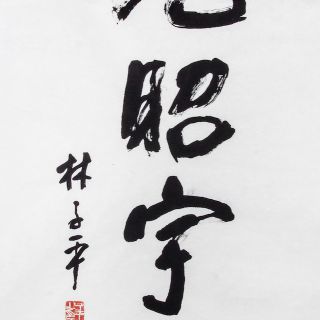 昭宇
林子平